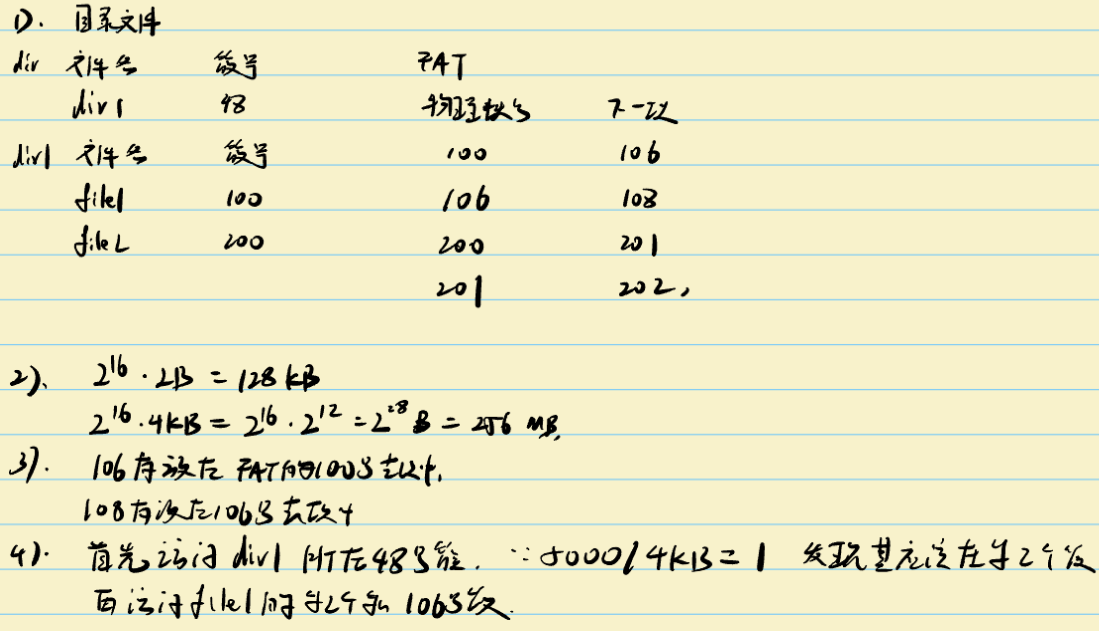 1). 目录文件
dir 文件名 簇号 FAT
dir1 48 物理块号 下一块
dir1 文件名 簇号 100 106
file1 100 106 108
file2 200 200 201
201 202,
2). 2^16 · 2B = 128 KB
2^16 · 4KB = 2^16 · 2^12 = 2^28 B = 256 MB.
3). 106存放在 FAT的100号表项中,
108存放在106号表项中
4). 首先访问 dir1 所在48号簇. ∵ 5000/4KB = 1 发现其应该在第2个簇
再访问file1的第2个簇 106号簇.